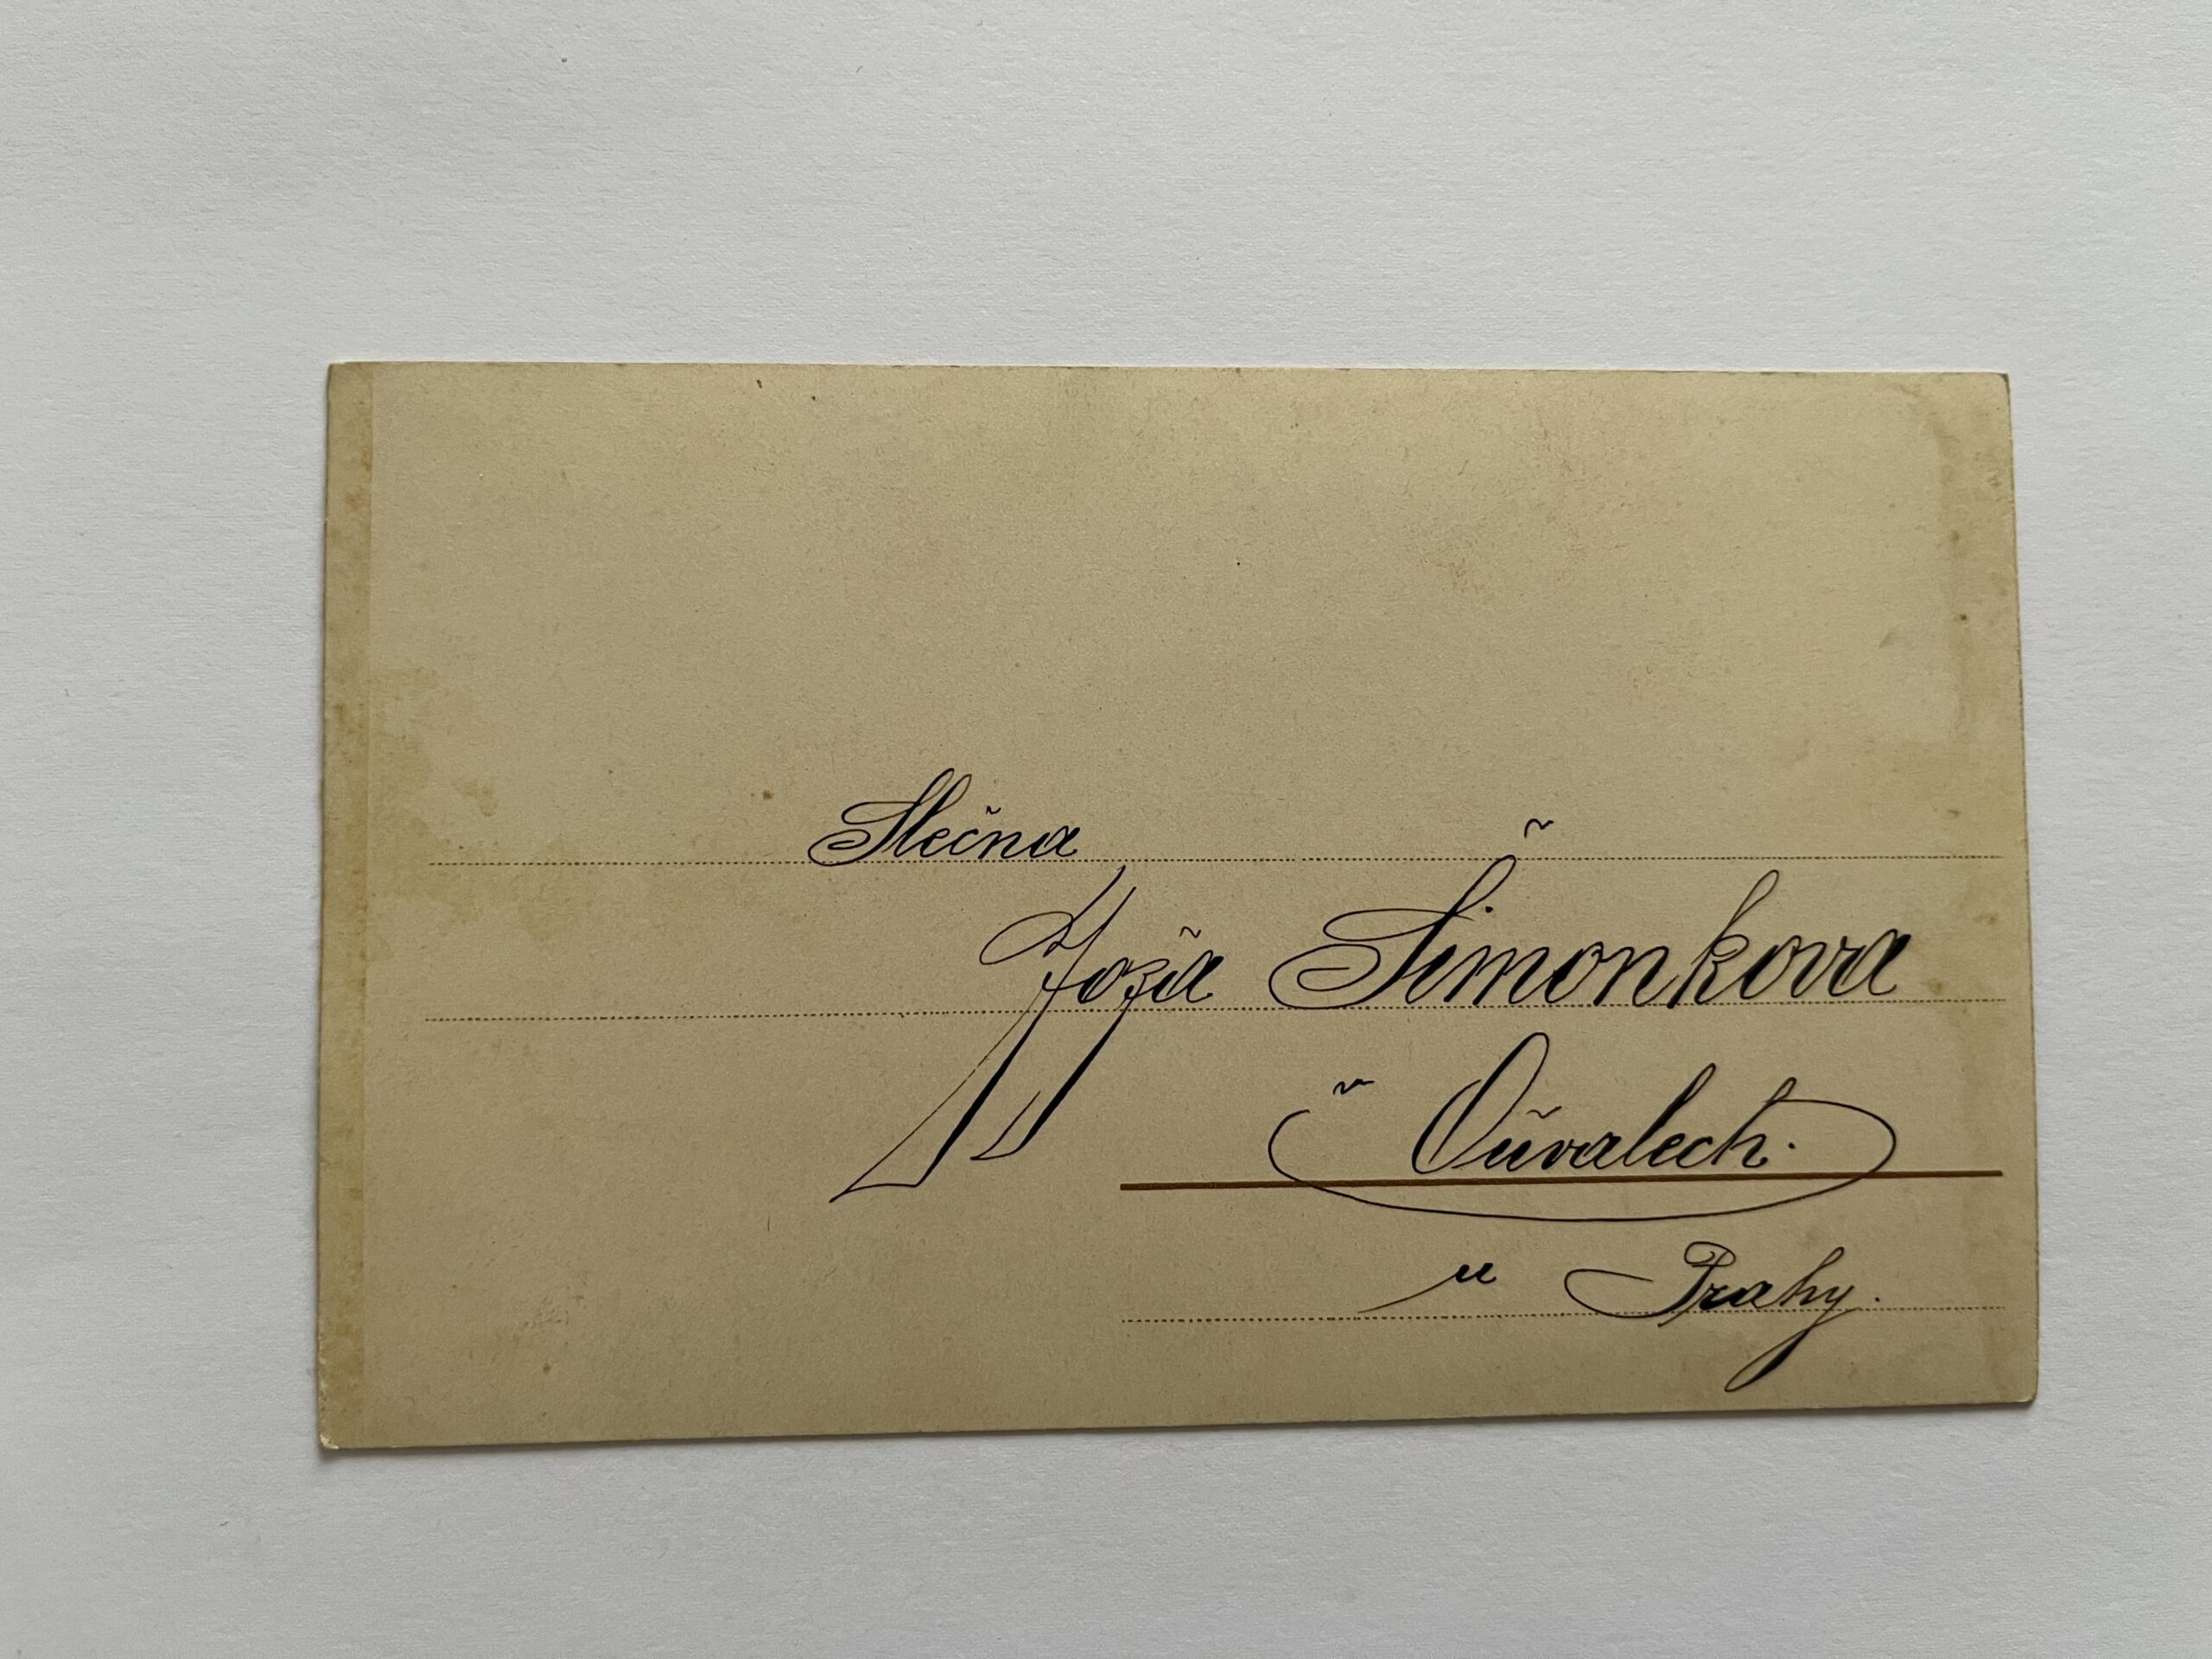 Slečna
Joža Šimonkova
v Ouvalech.
u Prahy.